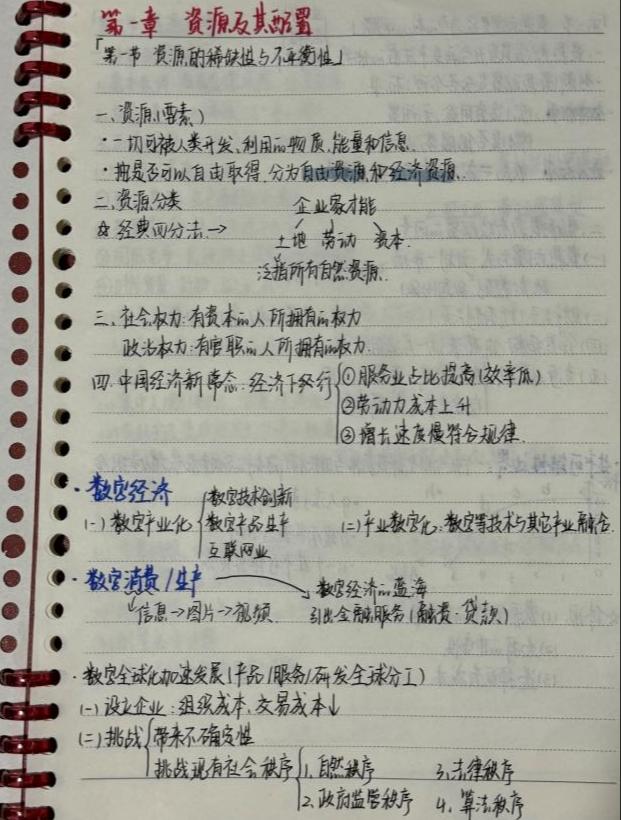 第一章 资源及其配置
「第一节 资源的稀缺性与不平衡性」
一、资源(要素)
·一切可被人类开发、利用的物质、能量和信息.
·按是否可以自由取得,分为自由资源和经济资源.
二、资源分类
企业家才能
☆ 经典四分法→
土地 劳动 资本.
泛指所有自然资源.
三、社会权力:有资本的人所拥有的权力
政治权力:有官职的人所拥有的权力.
四.中国经济新常态:经济下行
①服务业占比提高(效率低)
②劳动力成本上升
③增长速度慢符合规律.
·数字经济
数字技术创新
(一)数字产业化
数字产品生产
互联网业
(二)产业数字化:数字等技术与其它产业融合.
·数字消费/生产
数字经济的蓝海
信息→图片→视频.
引出金融服务(融资·贷款)
·数字全球化加速发展(产品/服务/研发全球分工)
(一)设立企业:组织成本、交易成本↓
(二)挑战
带来不确定性
挑战现有社会秩序
1、自然秩序 3、法律秩序
2、政府监管秩序 4、算法秩序